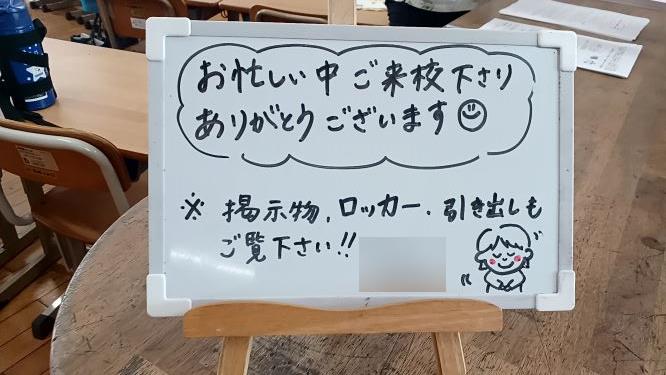 お忙しい中ご来校下さり
ありがとうございます
※掲示物、ロッカー、引き出しも
ご覧下さい!!